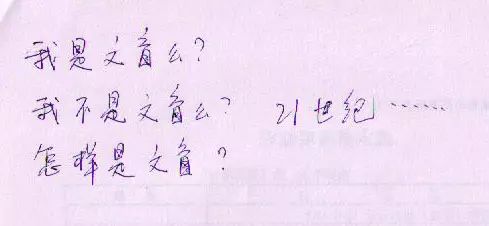 我是文盲么?
我不是文盲么? 21世纪……
怎样是文盲?